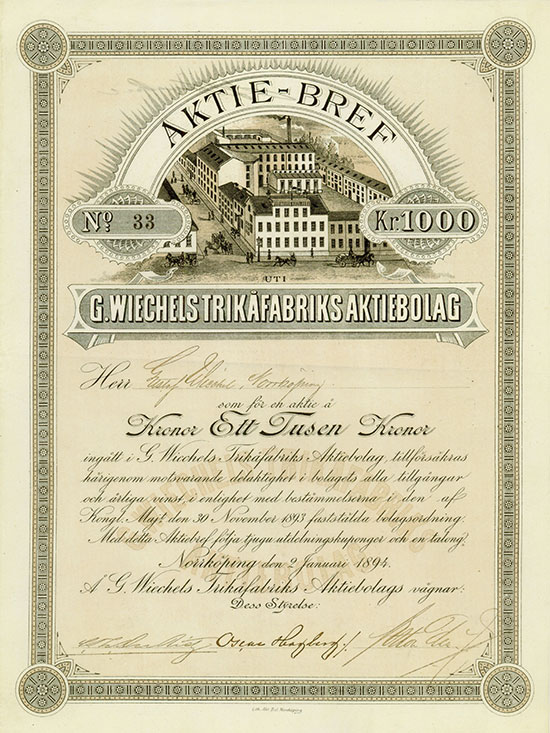 AKTIE-BREF
No. 33
Kr. 1000
UTI
G. WIECHELS TRIKÅFABRIKS AKTIEBOLAG
Herr Gustaf Wiechel, Norrköping
som för en aktie å
Kronor Ett Tusen Kronor
ingått i G. Wiechels Trikåfabriks Aktiebolag, tillförsäkras
härigenom motsvarande delaktighet i bolagets alla tillgångar
och årliga vinst, i enlighet med bestämmelserna i den af
Kongl. Maj:t den 30 November 1893 fastställda bolagsordning.
Med detta Aktiebref följa tjugu utdelningskuponger och en talong.
Norrköping den 2 Januari 1894.
Å G. Wiechels Trikåfabriks Aktiebolags vägnar:
Dess Styrelse:
Oscar Hagberg
Norrköping